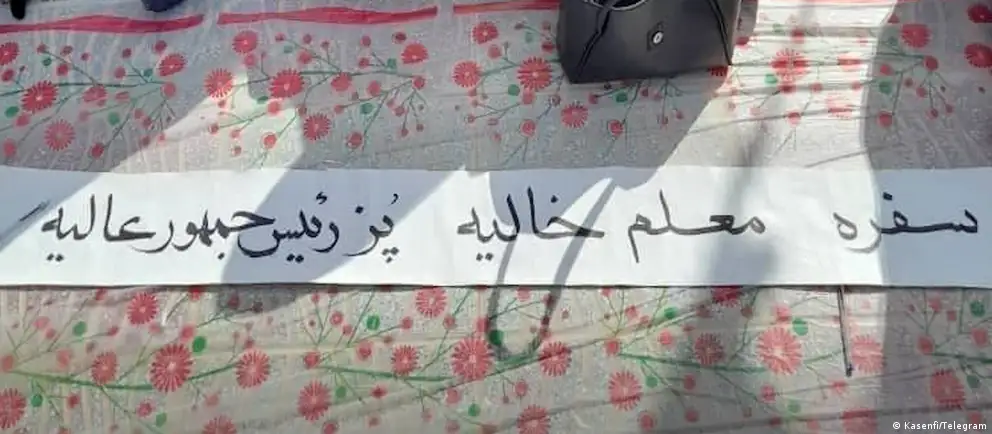 سفره معلم خالیه پُز رئیس‌جمهور عالیه
© Kasenfi/Telegram